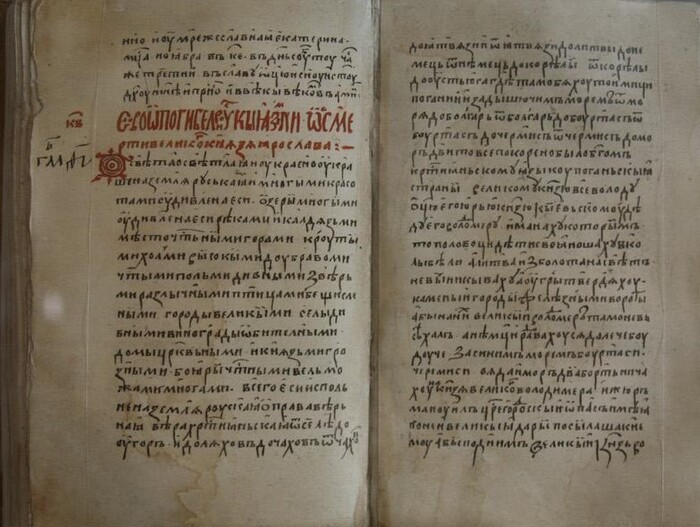 нню и оу мрежеславнаꙗ екатерина·
мца ноꙗбра въ ке· въ днь
же третии въ славоу ѿцю и сноу и стоу
дхоу и нн҃ѣ и прно и в вѣкы вѣкомъ ами
кв
слово ѡ погибели рускыꙗ земли и ѡ сме
рти великого кнꙗзꙗ ꙗрослава:
ѡ свѣтло свѣтлаꙗ и оукрасно оукра
шена землꙗ руськаꙗ и многыми красо
тами оудивлена еси· озеры многыми
оудивлена еси рѣками и кладꙗзьми
мѣсточтьными горами· кроуты
ми холми· высокыми доубравоми·
чтыми польми дивными звѣрь
ми различными птицами бещисле
ными городы великыми селы ди
вными винограды обителными·
домы црквьными· и кнꙗзьми гро
зными· боꙗры чтными вельмо
жами многами· всего еси испол
нена землꙗ роускаꙗ ѡ правовѣрь
наꙗ вѣра хртиꙗньскаꙗ ѿселѣ до
оугоръ и до лꙗховъ до чаховъ ѿ чахо
до ꙗтвꙗзи и ѿ ꙗтвꙗзи до литвы до не
мець ѿ нѣмець до корѣлы ѿ корѣлы
до оустьюга гдѣ тамо бꙗхоу тоимици
погании и за дышючимъ моремъ ѿ мо
рꙗ до болгаръ ѿ болгаръ до боуртасъ ѿ
боуртасъ до чермисъ ѿ чермисъ до мо
рьдви то все покорено было бгомъ
кртиꙗньскому ꙗзыку поганьскыꙗ
страны великому кнзю всеволоду
ѿцю его юрью кнзю кыевьскому дѣ
ду его володимеру и манамаху которымъ
то половоци дѣти своꙗ ношаху в ко
лыбѣли а литва из болота на свѣтъ
не выникываху а оугры твердꙗху
каменыи городы желѣзными вороты
абы на нихъ великыи володимеръ тамо не въ
ѣхалъ а нѣмци радовахоусꙗ далече боу
доуче за синимъ моремъ боуртаси
черемиси вꙗда и морьдва бортьнича
хоу на кнзꙗ великого володимера и жюръ
мануилъ црегородскыи ѡпасъ имѣꙗ
поне и великыꙗ дары посылаша к не
моу абы под нимъ великыи кнзь